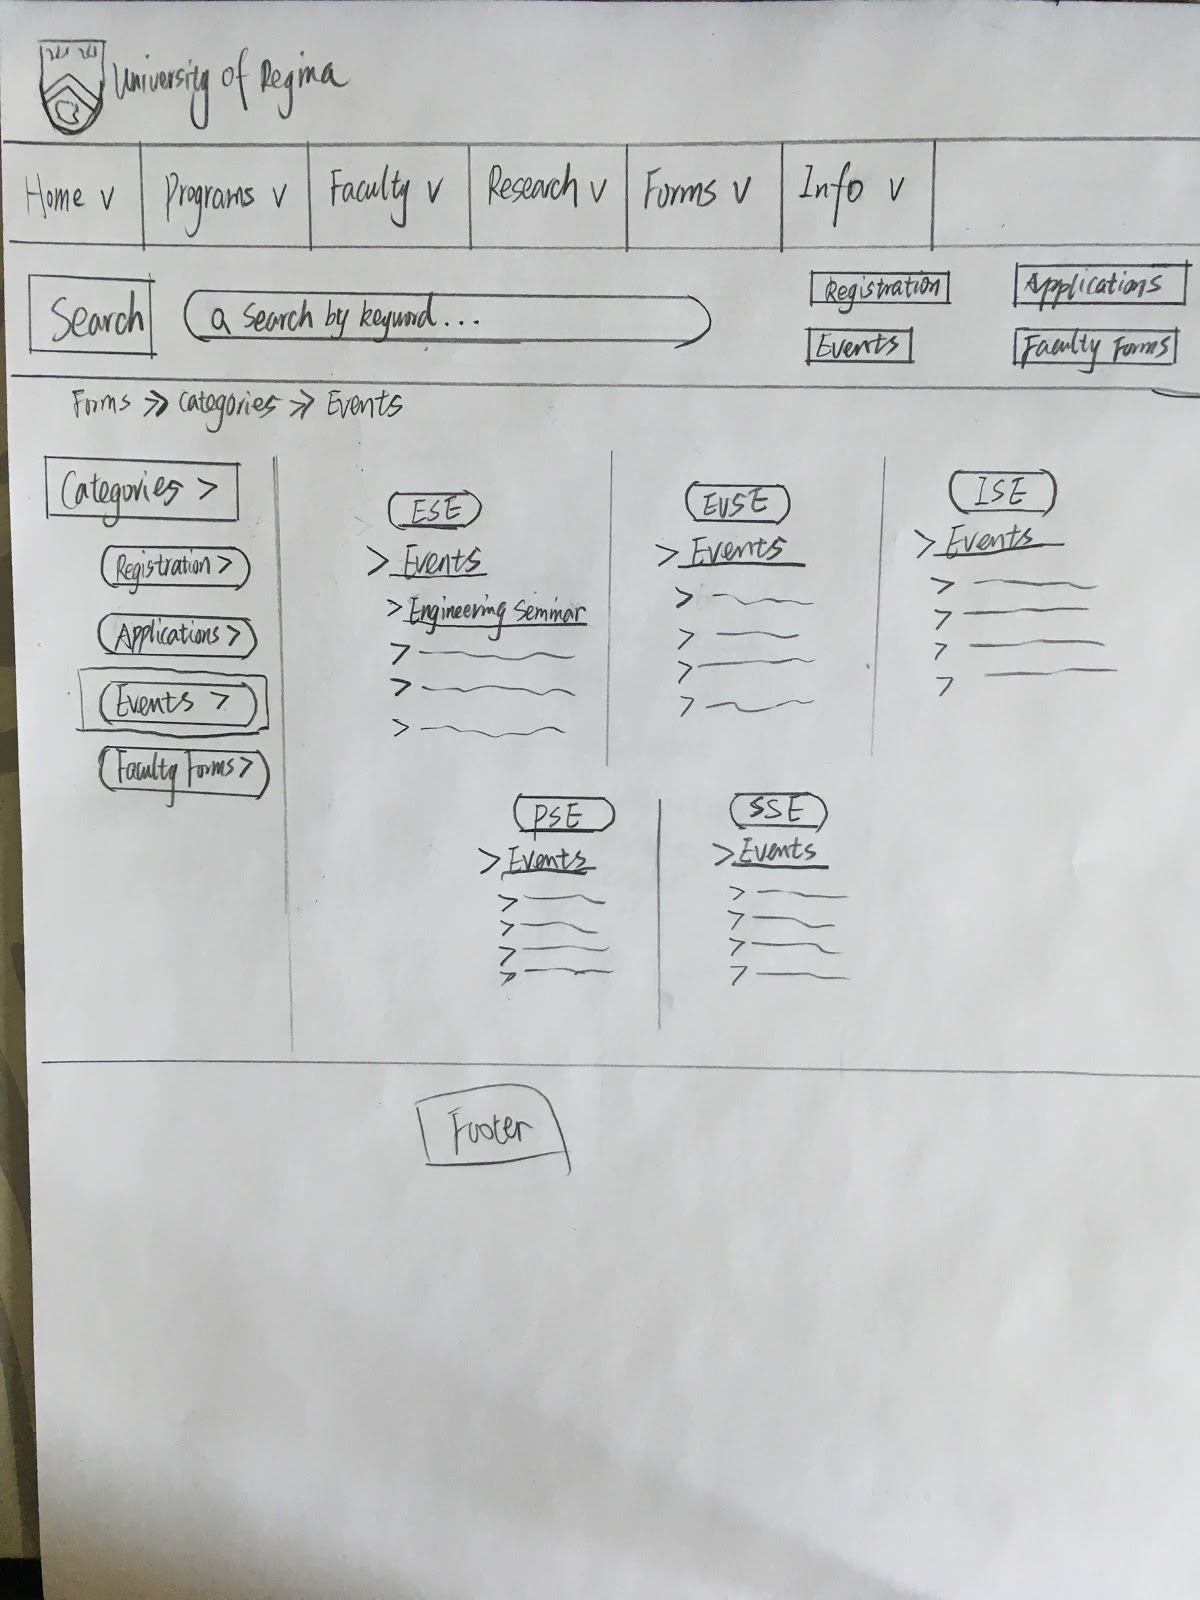 University of Regina
Home v Programs v Faculty v Research v Forms v Info v
Search
a search by keyword...
Registration Applications
Events Faculty Forms
Forms >> Categories >> Events
Categories >
Registration >
Applications >
Events >
Faculty Forms >
ESE
> Events
> Engineering Seminar
>
>
>
EVSE
> Events
>
>
>
>
ISE
> Events
>
>
>
>
PSE
> Events
>
>
>
>
SSE
> Events
>
>
>
>
Footer